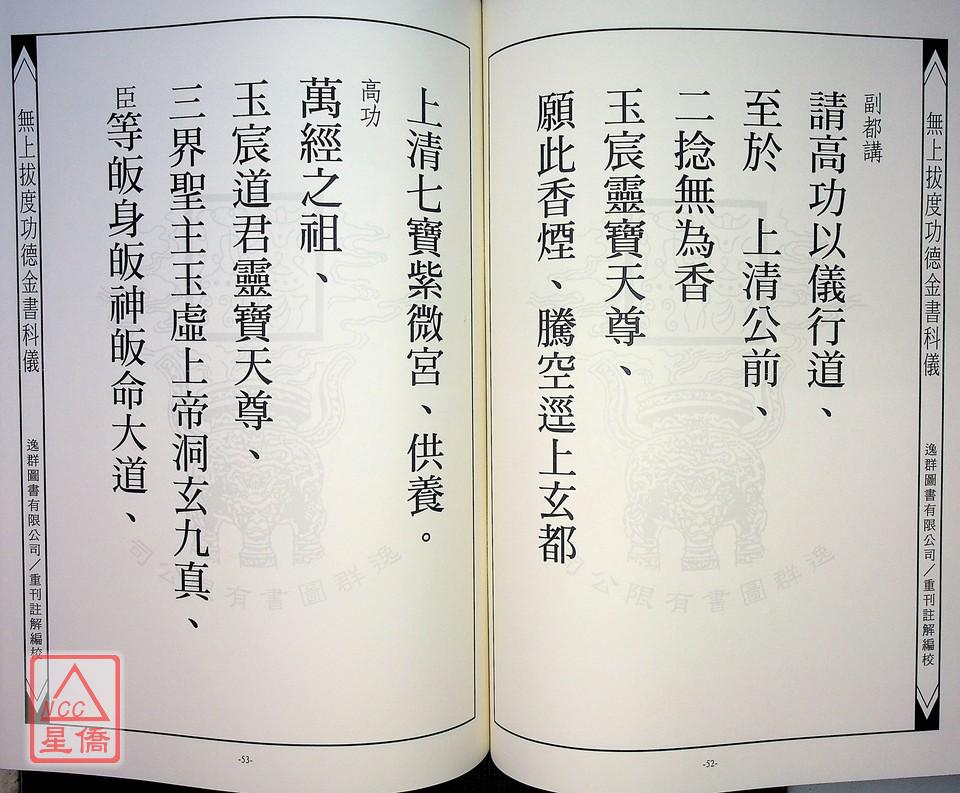 無上拔度功德金書科儀
逸群圖書有限公司/重刊註解編校
副都講
請高功以儀行道、
至於 上清公前、
二捻無為香
玉宸靈寶天尊、
願此香煙、騰空逕上玄都
逸群圖書有限公司
-52-
上清七寶紫微宮、供養。
高功
萬經之祖、
玉宸道君靈寶天尊、
三界聖主玉虛上帝洞玄九真、
臣等皈身皈神皈命大道、
逸群圖書有限公司
無上拔度功德金書科儀
逸群圖書有限公司/重刊註解編校
-53-
NCC
星僑